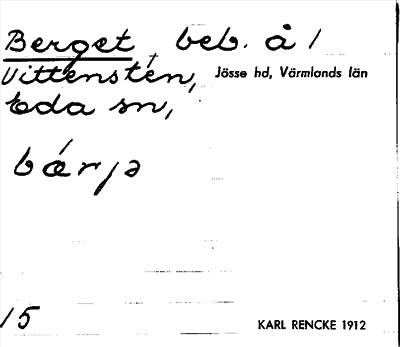 Berget, beb. å /
Vittenstén, Jösse hd, Värmlands län
Eda sn,
bǽrjə
15
KARL RENCKE 1912